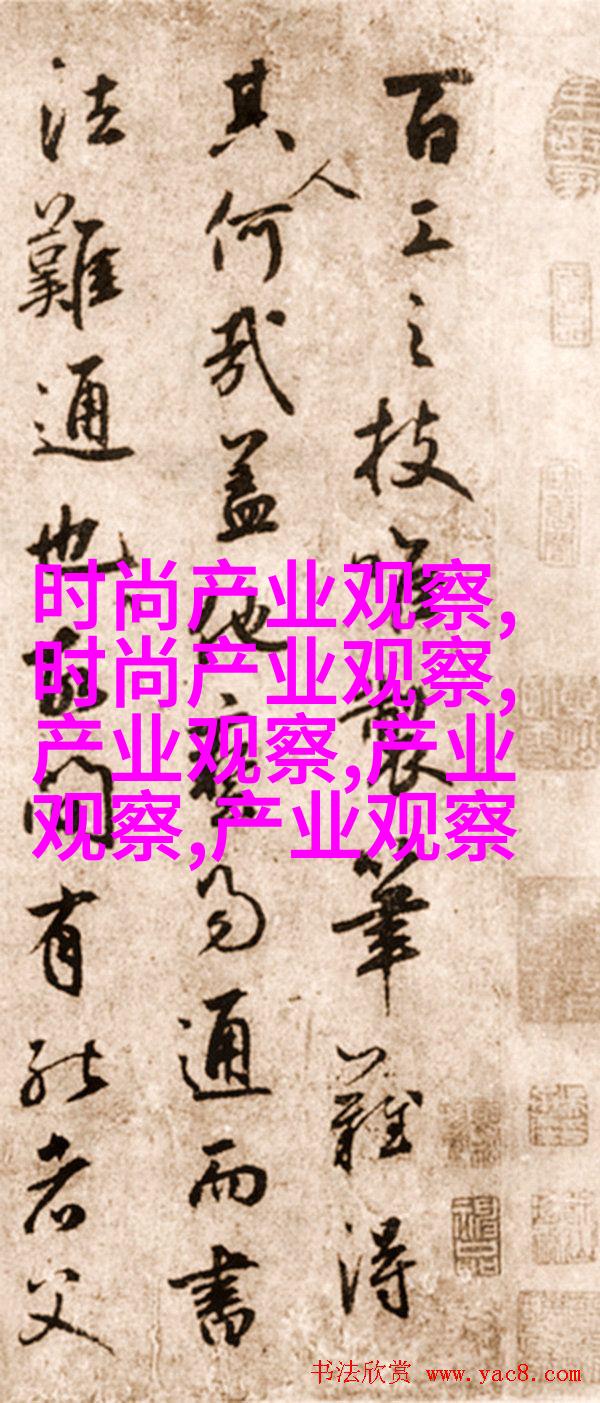 百工之技唯製筆難得
其人何哉蓋他藝易通而書
法難通也間有能者父
时尚产业观察,
时尚产业观察,
产业观察,产业
观察,产业观察
书法欣赏 www.yac8.com